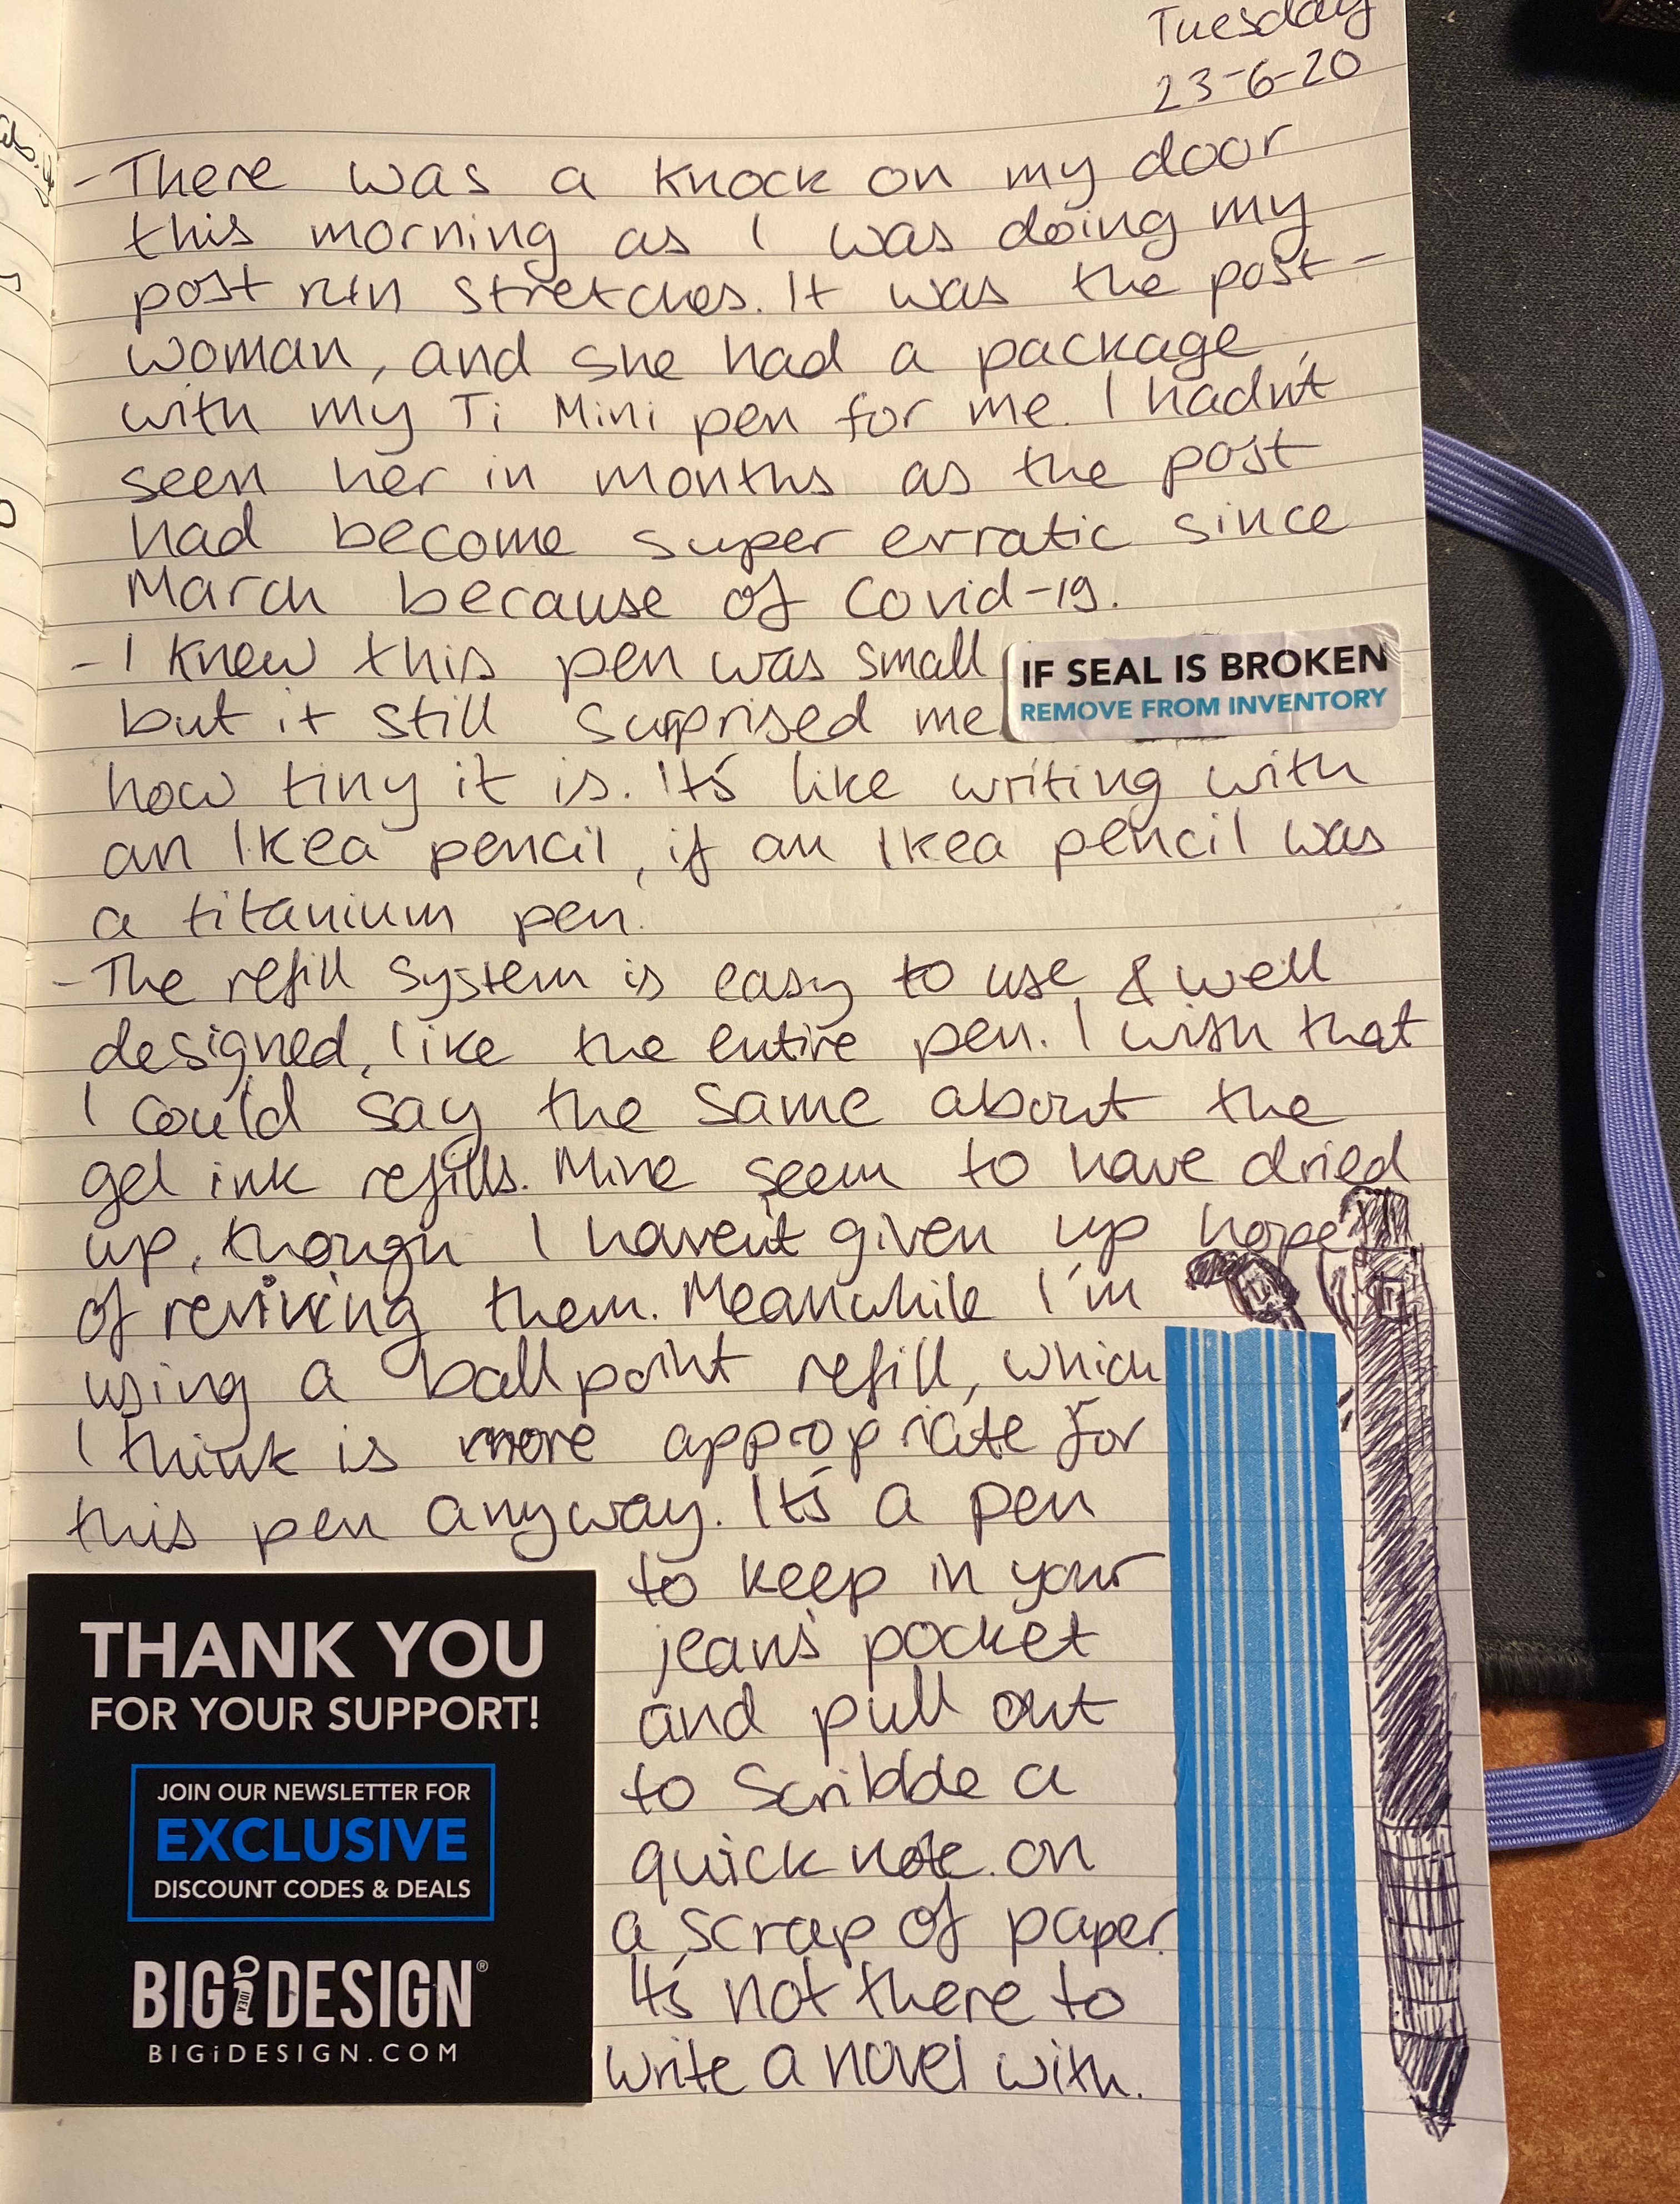 Tuesday
23-6-20
- There was a knock on my door
this morning as I was doing my
post run stretches. It was the post-
woman, and she had a package
with my Ti Mini pen for me. I hadn't
seen her in months as the post
had become super erratic since
March because of Covid-19.
- I knew this pen was small
but it still surprised me
IF SEAL IS BROKEN
REMOVE FROM INVENTORY
how tiny it is. It's like writing with
an Ikea pencil, if an Ikea pencil was
a titanium pen.
- The refill system is easy to use & well
designed, like the entire pen. I wish that
I could say the same about the
gel ink refills. Mine seem to have dried
up, though I haven't given up hope
of reviving them. Meanwhile I'm
using a ballpoint refill, which
I think is more appropriate for
this pen anyway. It's a pen
to keep in your
jeans' pocket
and pull out
to scribble a
quick note on
a scrap of paper.
It's not there to
write a novel with.
THANK YOU
FOR YOUR SUPPORT!
JOIN OUR NEWSLETTER FOR
EXCLUSIVE
DISCOUNT CODES & DEALS
BIGiDESIGN®
IDEA
BIGiDESIGN.COM